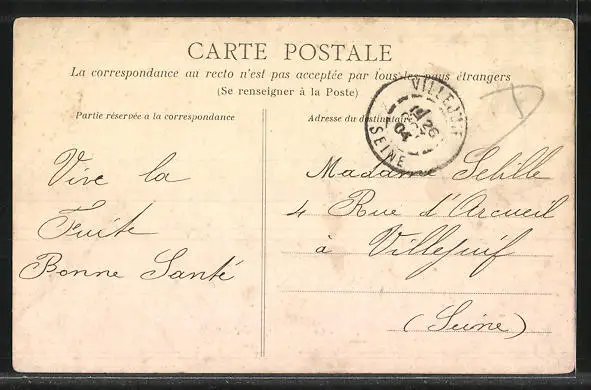 CARTE POSTALE
La correspondance au recto n'est pas acceptée par tous les pays étrangers
(Se renseigner à la Poste)
Partie réservée a la correspondance
Adresse du destinataire
VILLEJUIF
26
04
SEINE
Vive la
Fuite
Bonne Santé
Madame Sebille
4 Rue d'Arcueil
à Villejuif
(Seine)